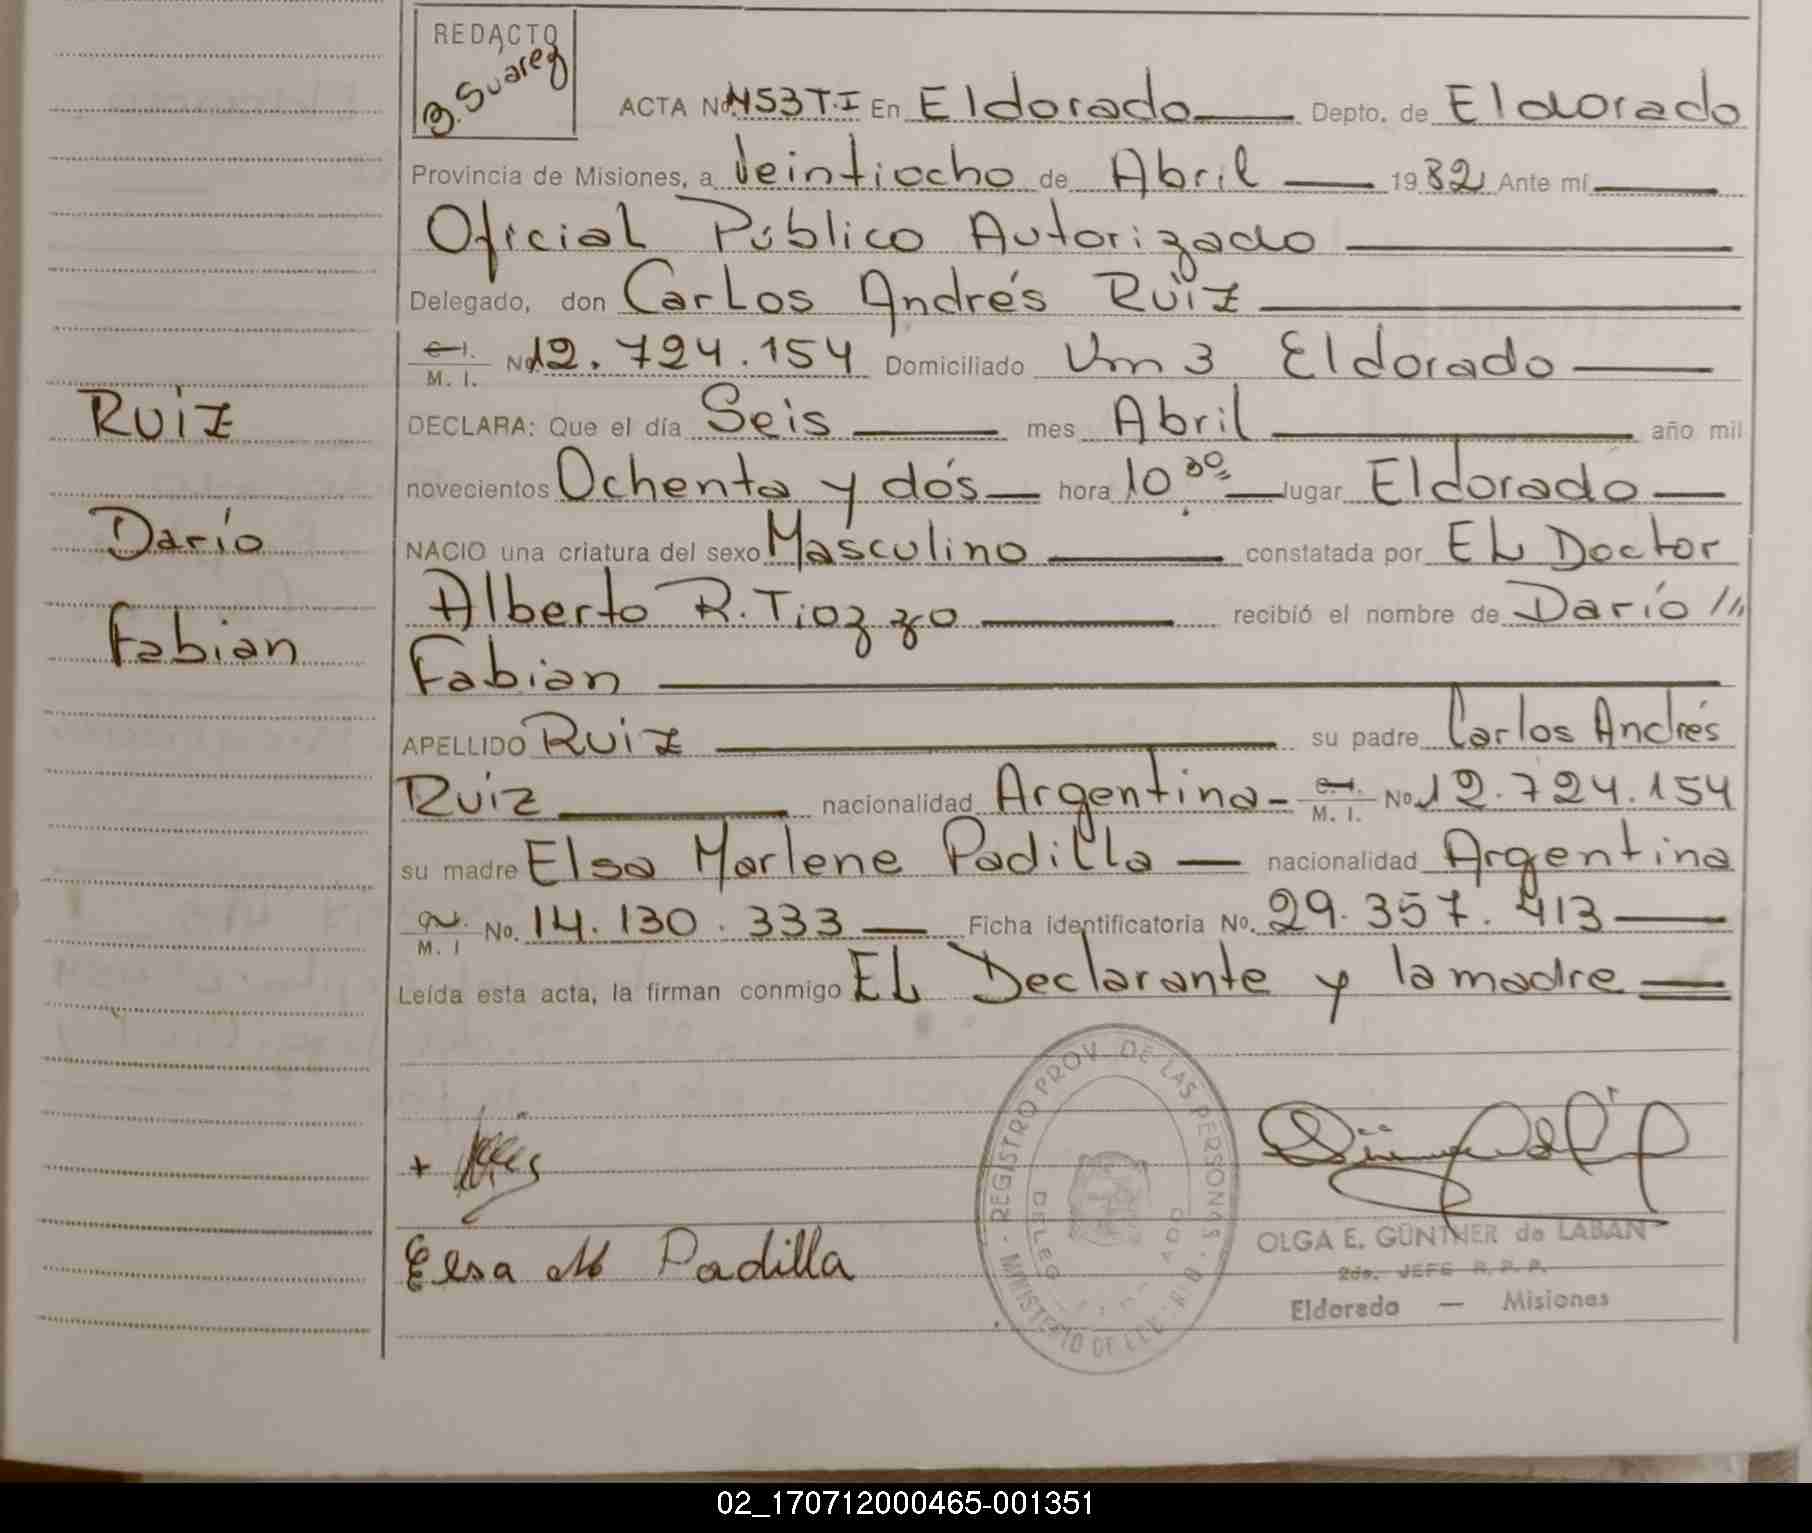 REDACTO
B. Suárez
ACTA No. 453 T.I En Eldorado Depto. de Eldorado
Provincia de Misiones, a Veintiocho de Abril 1982 Ante mí
Oficial Público Autorizado
Delegado, don Carlos Andrés Ruiz
C. I. M. I. No 12.724.154 Domiciliado Km 3 Eldorado
Ruiz
DECLARA: Que el día Seis mes Abril año mil
novecientos Ochenta y dós hora 10 30 lugar Eldorado
Darío
NACIO una criatura del sexo Masculino constatada por EL Doctor
Alberto R. Tiozzo recibió el nombre de Darío
Fabian
Fabian
APELLIDO Ruiz su padre Carlos Andrés
Ruiz nacionalidad Argentina M. I. No. 12.724.154
su madre Elsa Marlene Padilla nacionalidad Argentina
M. I No. 14.130.333 Ficha identificatoria No. 29.357.413
Leída esta acta, la firman conmigo EL Declarante y la madre
REGISTRO PROV. DE LAS PERSONAS
MINISTERIO DE
Elsa M Padilla
OLGA E. GÜNTNER de LABAN
2do. JEFE R. P. P.
Eldorado — Misiones
02_170712000465-001351